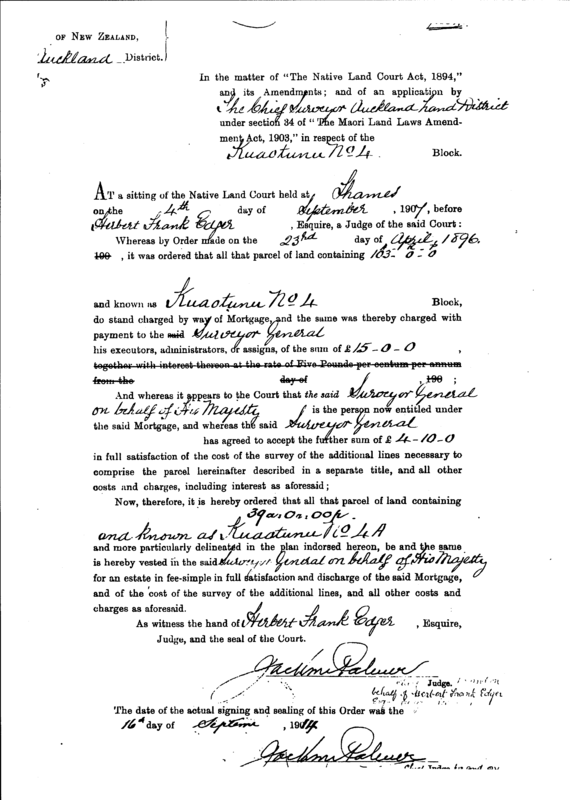 OF NEW ZEALAND,
Auckland District.
In the matter of "The Native Land Court Act, 1894,"
and its Amendments; and of an application by
The Chief Surveyor Auckland Land District
under section 34 of "The Maori Land Laws Amend-
ment Act, 1903," in respect of the
Kuaotunu No 4 Block.
AT a sitting of the Native Land Court held at Thames
on the 4th day of September , 1907, before
Herbert Frank Edger , Esquire, a Judge of the said Court:
Whereas by Order made on the 23rd day of April, 1896.
190 , it was ordered that all that parcel of land containing 103-0-0
and known as Kuaotunu No 4 Block,
do stand charged by way of Mortgage, and the same was thereby charged with
payment to the said Surveyor General
his executors, administrators, or assigns, of the sum of £15-0-0 ,
together with interest thereon at the rate of Five Pounds per centum per annum
from the day of , 190 ;
And whereas it appears to the Court that the said Surveyor General
on behalf of His Majesty is the person now entitled under
the said Mortgage, and whereas the said Surveyor General
has agreed to accept the further sum of £ 4-10-0
in full satisfaction of the cost of the survey of the additional lines necessary to
comprise the parcel hereinafter described in a separate title, and all other
costs and charges, including interest as aforesaid;
Now, therefore, it is hereby ordered that all that parcel of land containing
39a. 0r. 00p.
and known as Kuaotunu No 4A
and more particularly delineated in the plan indorsed hereon, be and the same
is hereby vested in the said Surveyor General on behalf of His Majesty
for an estate in fee-simple in full satisfaction and discharge of the said Mortgage,
and of the cost of the survey of the additional lines, and all other costs and
charges as aforesaid.
As witness the hand of Herbert Frank Edger , Esquire,
Judge, and the seal of the Court.
Jackson Palmer
Judge.
behalf of Herbert Frank Edger
The date of the actual signing and sealing of this Order was the
16th day of Septem , 1914
Jackson Palmer
Chief Judge for and on